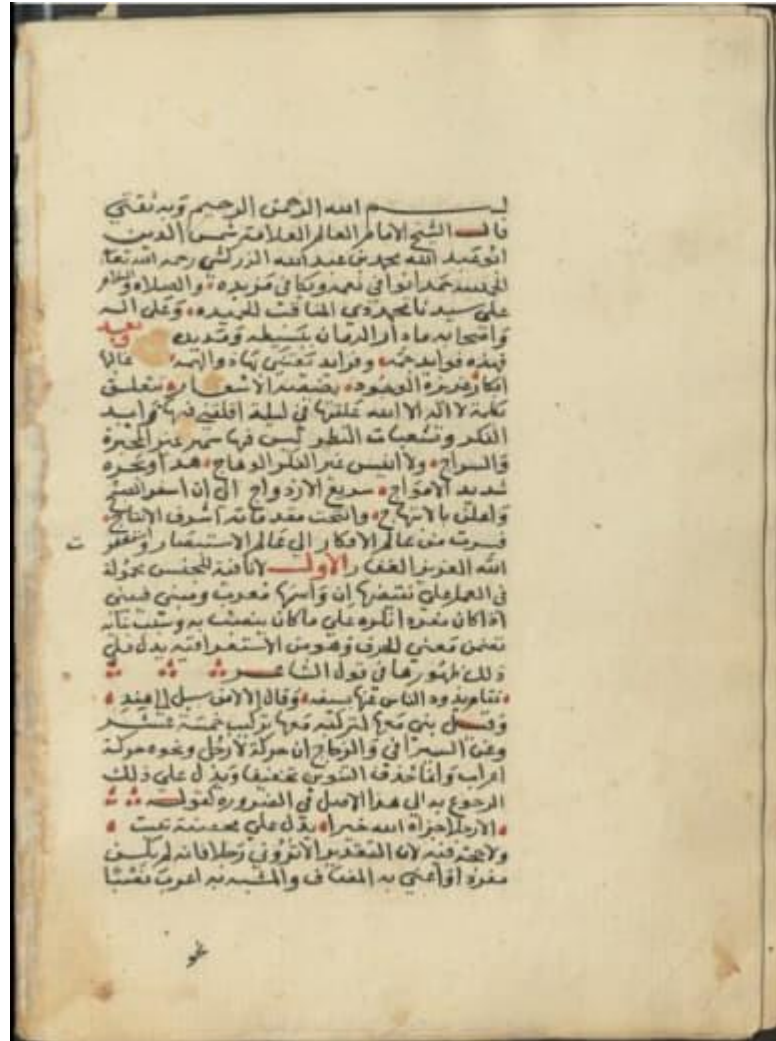 بسم الله الرحمن الرحيم وبه ثقتي
قال الشيخ الامام العالم العلامة شمس الدين
ابو عبد الله محمد بن عبد الله الزركشي رحمه الله تعالى
الحمد لله حمدا يوافي نعمه ويكافي مزيده والصلاة والسلام
على سيدنا محمد ذي المناقب الحميده وعلى اله
واصحابه ما دار الزمان ببسيطه ومديده وبعد
فهذه فوايد جمه وفرايد تعتني بها ذوا الهمه غالبها
افكار عزيزة الوجود بصفة الاشعار يتعلق
بكلمة لا اله الا الله علقتها في ليلة اقلقني فيها توايد
الفكر وتشعبات النظر ليس فيها سمير غير المحبرة
والسراج ولا انيس غير الفكر الوهاج هذا وبحره
شديد الامواج سريع الازدواج الى ان اسفر الصبح
واعلن بالابتهاج وانتجت مقدماته اشرف الانتاج
فسرت من عالم الافكار الى عالم الاستبصار واستغفرت
الله العزيز الغفار الاول لا نافية للجنس محمولة
في العمل على نقيضها ان واسمها معرب ومبني فيبني
اذا كان مفردا نكره على ما كان ينصب به وسبب بنايه
تضمن معنى الحرف وهو من الاستغراقيه يدل على
ذلك ظهورها في قول الشاعر
فقام يذود الناس عنها بسيفه وقال الا لا من سبيل الى هند
وقيل بني معها لتركبه معها تركيب خمسة عشر
وعن السيرافي والزجاج ان حركة لا رجل ونحوه حركة
اعراب وانما حذف التنوين تخفيفا ويدل على ذلك
الرجوع به الى هذا الاصل في الضرورة كقوله
الا رجلا جزاه الله خيرا يدل على محصلة تبيت
ولا حجة فيه لان التقدير الا تروني رجلا فان لم يكن
مفردا واعني به المضاف والمشبه به اعرب نصبا
نحو